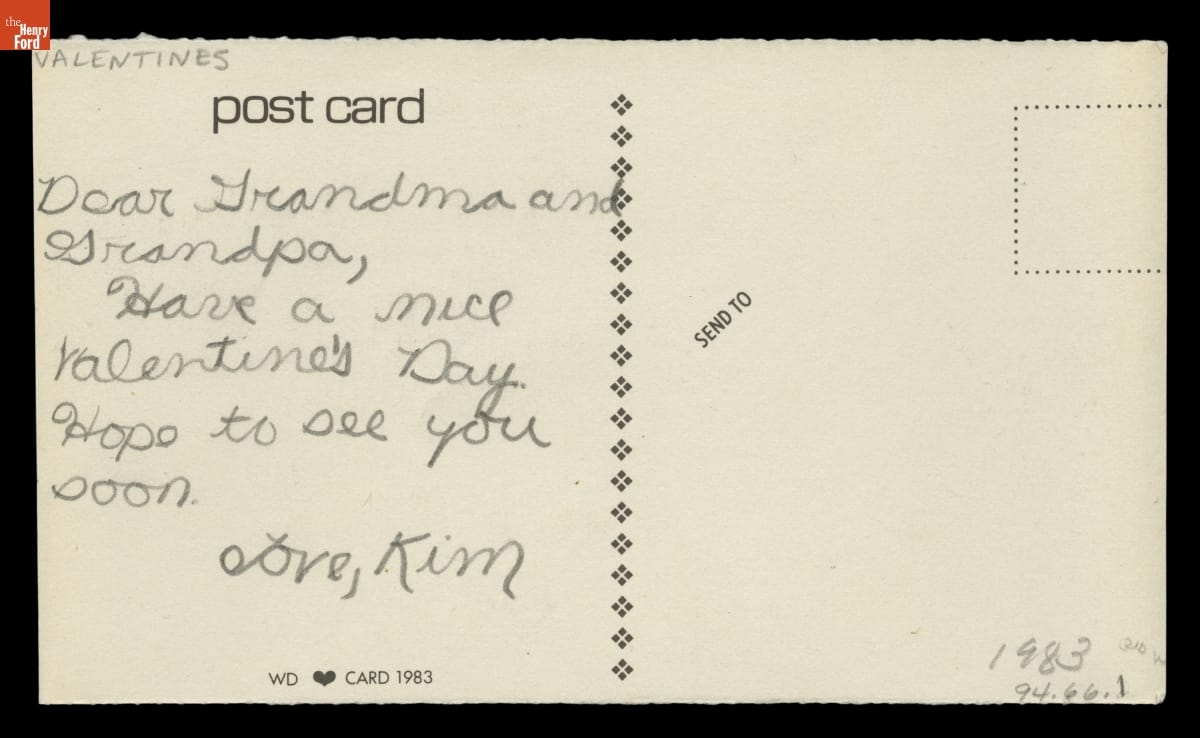 the
Henry
Ford
VALENTINES
post card
Dear Grandma and
Grandpa,
Have a nice
Valentine's Day.
Hope to see you
soon.
Love, Kim
WD ♥ CARD 1983
SEND TO
1983
94.66.1